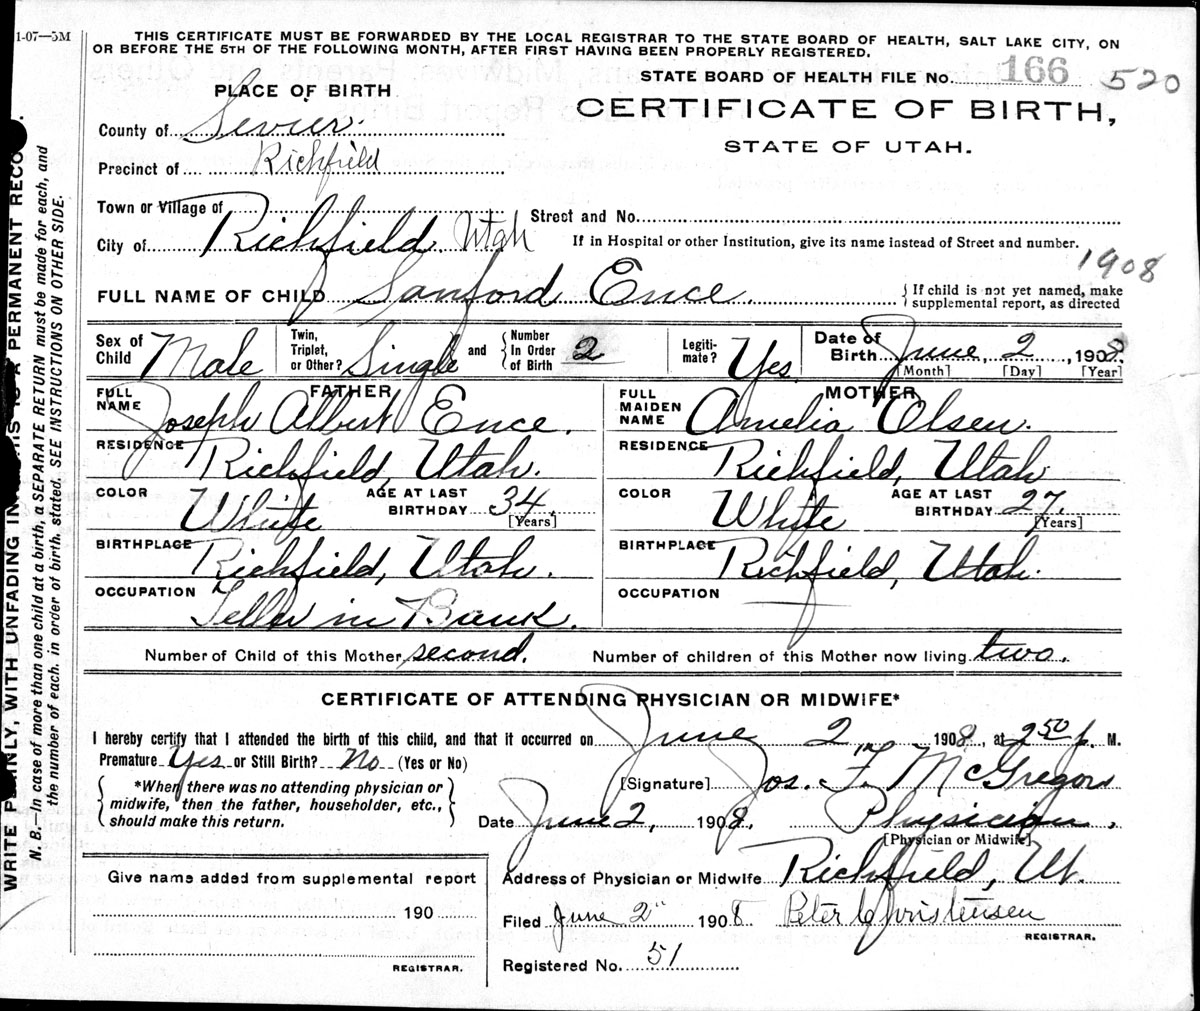 1-07—5M
THIS CERTIFICATE MUST BE FORWARDED BY THE LOCAL REGISTRAR TO THE STATE BOARD OF HEALTH, SALT LAKE CITY, ON
OR BEFORE THE 5TH OF THE FOLLOWING MONTH, AFTER FIRST HAVING BEEN PROPERLY REGISTERED.
STATE BOARD OF HEALTH FILE NO. 166 520
PLACE OF BIRTH
CERTIFICATE OF BIRTH,
STATE OF UTAH.
County of Sevier
Precinct of Richfield
Town or Village of
Street and No.
City of Richfield Utah
If in Hospital or other Institution, give its name instead of Street and number.
1908
FULL NAME OF CHILD Sanford Ence
{If child is not yet named, make
supplemental report, as directed
Sex of Child Male
Twin, Triplet, or Other? Single and {Number In Order of Birth 2
Legiti-mate? Yes.
Date of Birth June, 2, 1908.
[Month] [Day] [Year]
FATHER
FULL NAME Joseph Albert Ence.
RESIDENCE Richfield, Utah.
COLOR White AGE AT LAST BIRTHDAY 34.
[Years]
BIRTHPLACE Richfield, Utah.
OCCUPATION Teller in Bank.
MOTHER
FULL MAIDEN NAME Amelia Olsen.
RESIDENCE Richfield, Utah
COLOR White AGE AT LAST BIRTHDAY 27.
[Years]
BIRTHPLACE Richfield, Utah.
OCCUPATION
Number of Child of this Mother second. Number of children of this Mother now living two.
CERTIFICATE OF ATTENDING PHYSICIAN OR MIDWIFE*
I hereby certify that I attended the birth of this child, and that it occurred on June 2, 1908., at 2 50 p. M.
Premature Yes or Still Birth? No (Yes or No)
{*When there was no attending physician or
midwife, then the father, householder, etc.,
should make this return.}
[Signature] Jos. F. McGregor
Date June 2, 1908. Physician.
[Physician or Midwife]
Address of Physician or Midwife Richfield, Ut.
Filed June 2" 1908 Peter Christensen
REGISTRAR.
Registered No. 51
Give name added from supplemental report
190
REGISTRAR.
WRITE PLAINLY, WITH UNFADING IN THIS IS A PERMANENT RECO
N. B.—In case of more than one child at a birth, a SEPARATE RETURN must be made for each, and
the number of each, in order of birth, stated. SEE INSTRUCTIONS ON OTHER SIDE.